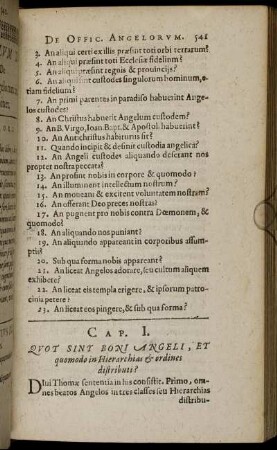 DE OFFIC. ANGELORVM. 541
3. An aliqui certi ex illis præsint toti orbi terrarum?
4. An aliqui præsint toti Ecclesiæ fidelium?
5. An aliqui præsint regnis & prouincijs?
6. An aliqui sint custodes singulorum hominum, etiam
fidelium?
7. An primi parentes in paradiso habuerint Ange-
los custodes?
8. An Christus habuerit Angelum custodem?
9. An B. Virgo, Ioan. Bapt. & Apostoli habuerint?
10. An Antichristus habiturus sit?
11. Quando incipit & desinit custodia angelica?
12. An Angeli custodes aliquando deserant nos
propter nostra peccata?
13. An prosint nobis in corpore & quomodo?
14. An illuminent intellectum nostrum?
15. An moneant & excitent voluntatem nostram?
16. An offerant Deo preces nostras?
17. An pugnent pro nobis contra Dœmonem, &
quomodo?
18. An aliquando nos puniant?
19. An aliquando appareant in corporibus assum-
ptis?
20. Sub qua forma nobis appareant?
21. An liceat Angelos adorare, seu cultum aliquem
exhibere?
22. An liceat eis templa erigere, & ipsorum patro-
cinia petere?
23. An liceat eos pingere, & sub qua forma?
CAP. I.
QVOT SINT BONI ANGELI, ET
quomodo in Hierarchias & ordines
distributi?
DIui Thomæ sententia in his consistit. Primo, om-
nes beatos Angelos in tres classes seu Hierarchias
distribu-